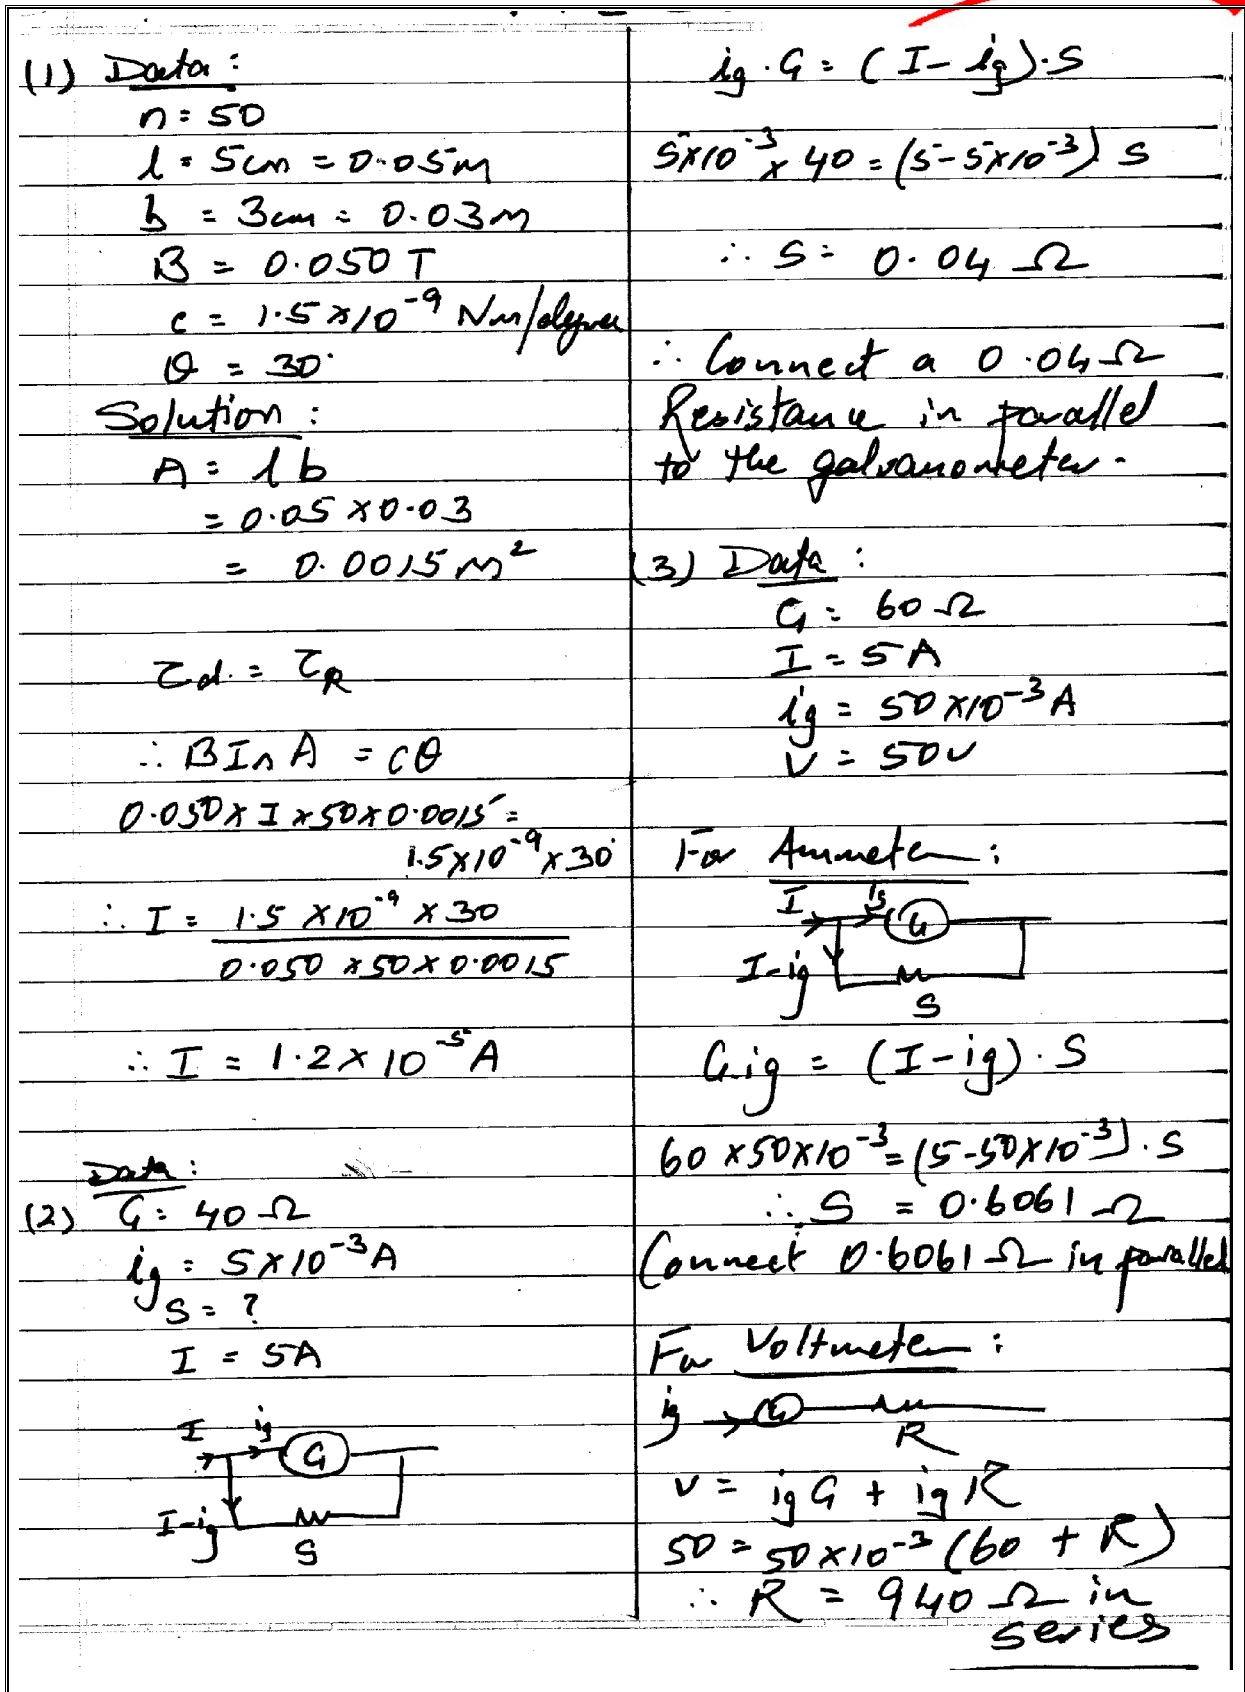 (1) Data :
n = 50
l = 5cm = 0.05m
b = 3cm = 0.03m
B = 0.050 T
c = 1.5 × 10⁻⁹ Nm/degree
θ = 30°
Solution :
A = l b
= 0.05 × 0.03
= 0.0015 m²
τd. = τR
∴ B I n A = cθ
0.050 × I × 50 × 0.0015 =
1.5 × 10⁻⁹ × 30°
∴ I = 1.5 × 10⁻⁹ × 30
0.050 × 50 × 0.0015
∴ I = 1.2 × 10⁻⁵ A
Data :
(2) G = 40 Ω
ig = 5 × 10⁻³ A
S = ?
I = 5A
I ig
G
I-ig
S
ig . G = (I - ig).S
5×10⁻³ × 40 = (5 - 5×10⁻³) S
∴ S = 0.04 Ω
∴ Connect a 0.04 Ω
Resistance in parallel
to the galvanometer.
(3) Data :
G = 60 Ω
I = 5A
ig = 50 × 10⁻³ A
V = 50V
For Ammeter :
I ig
G
I-ig
S
G.ig = (I - ig) . S
60 × 50 × 10⁻³ = (5 - 50 × 10⁻³) . S
∴ S = 0.6061 Ω
Connect 0.6061 Ω in parallel
For Voltmeter :
ig G
R
V = ig G + ig R
50 = 50 × 10⁻³ (60 + R)
∴ R = 940 Ω in
series